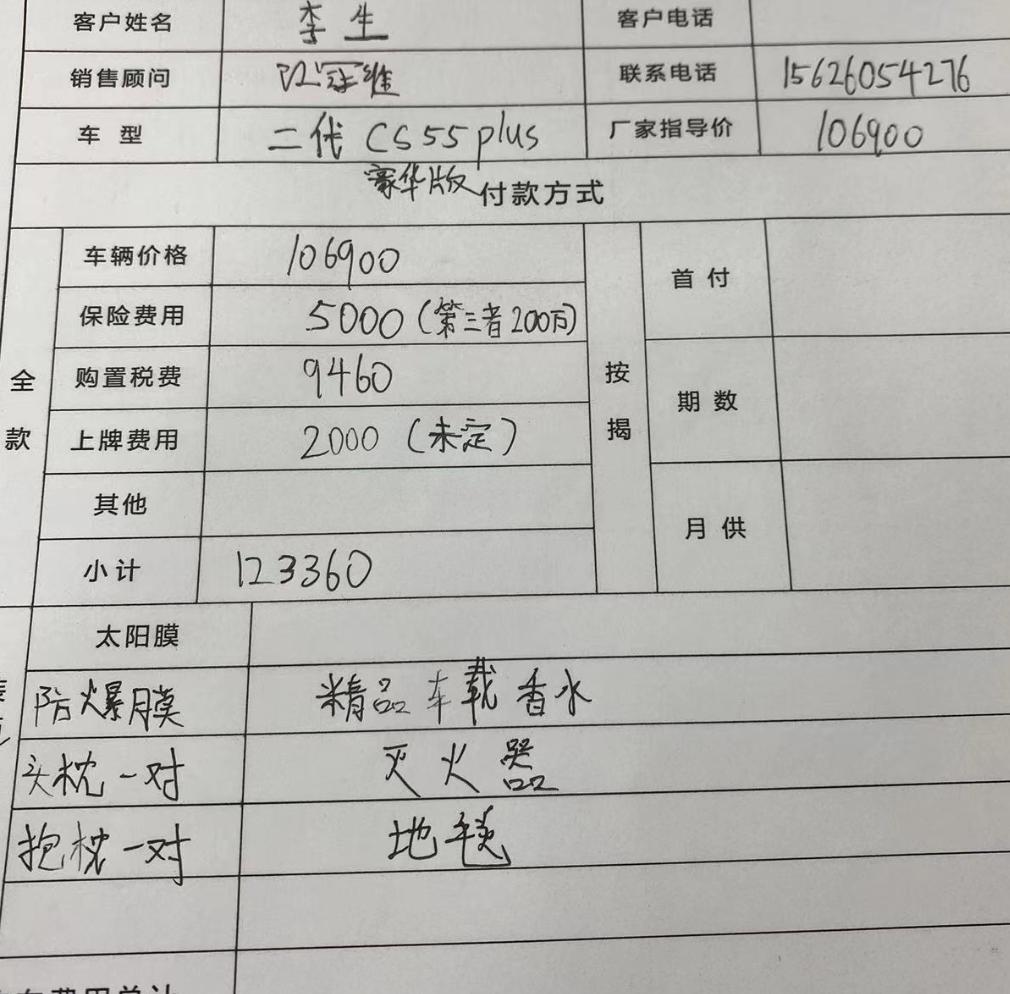 客户姓名 李生 客户电话
销售顾问 陈冠维 联系电话 15626054276
车型 二代 CS55 plus 厂家指导价 106900
豪华版 付款方式
全款 车辆价格 106900 按揭 首付
保险费用 5000 (第三者200万)
购置税费 9460 期数
上牌费用 2000 (未定)
其他 月供
小计 123360
太阳膜
防爆膜 精品车载香水
头枕一对 灭火器
抱枕一对 地毯